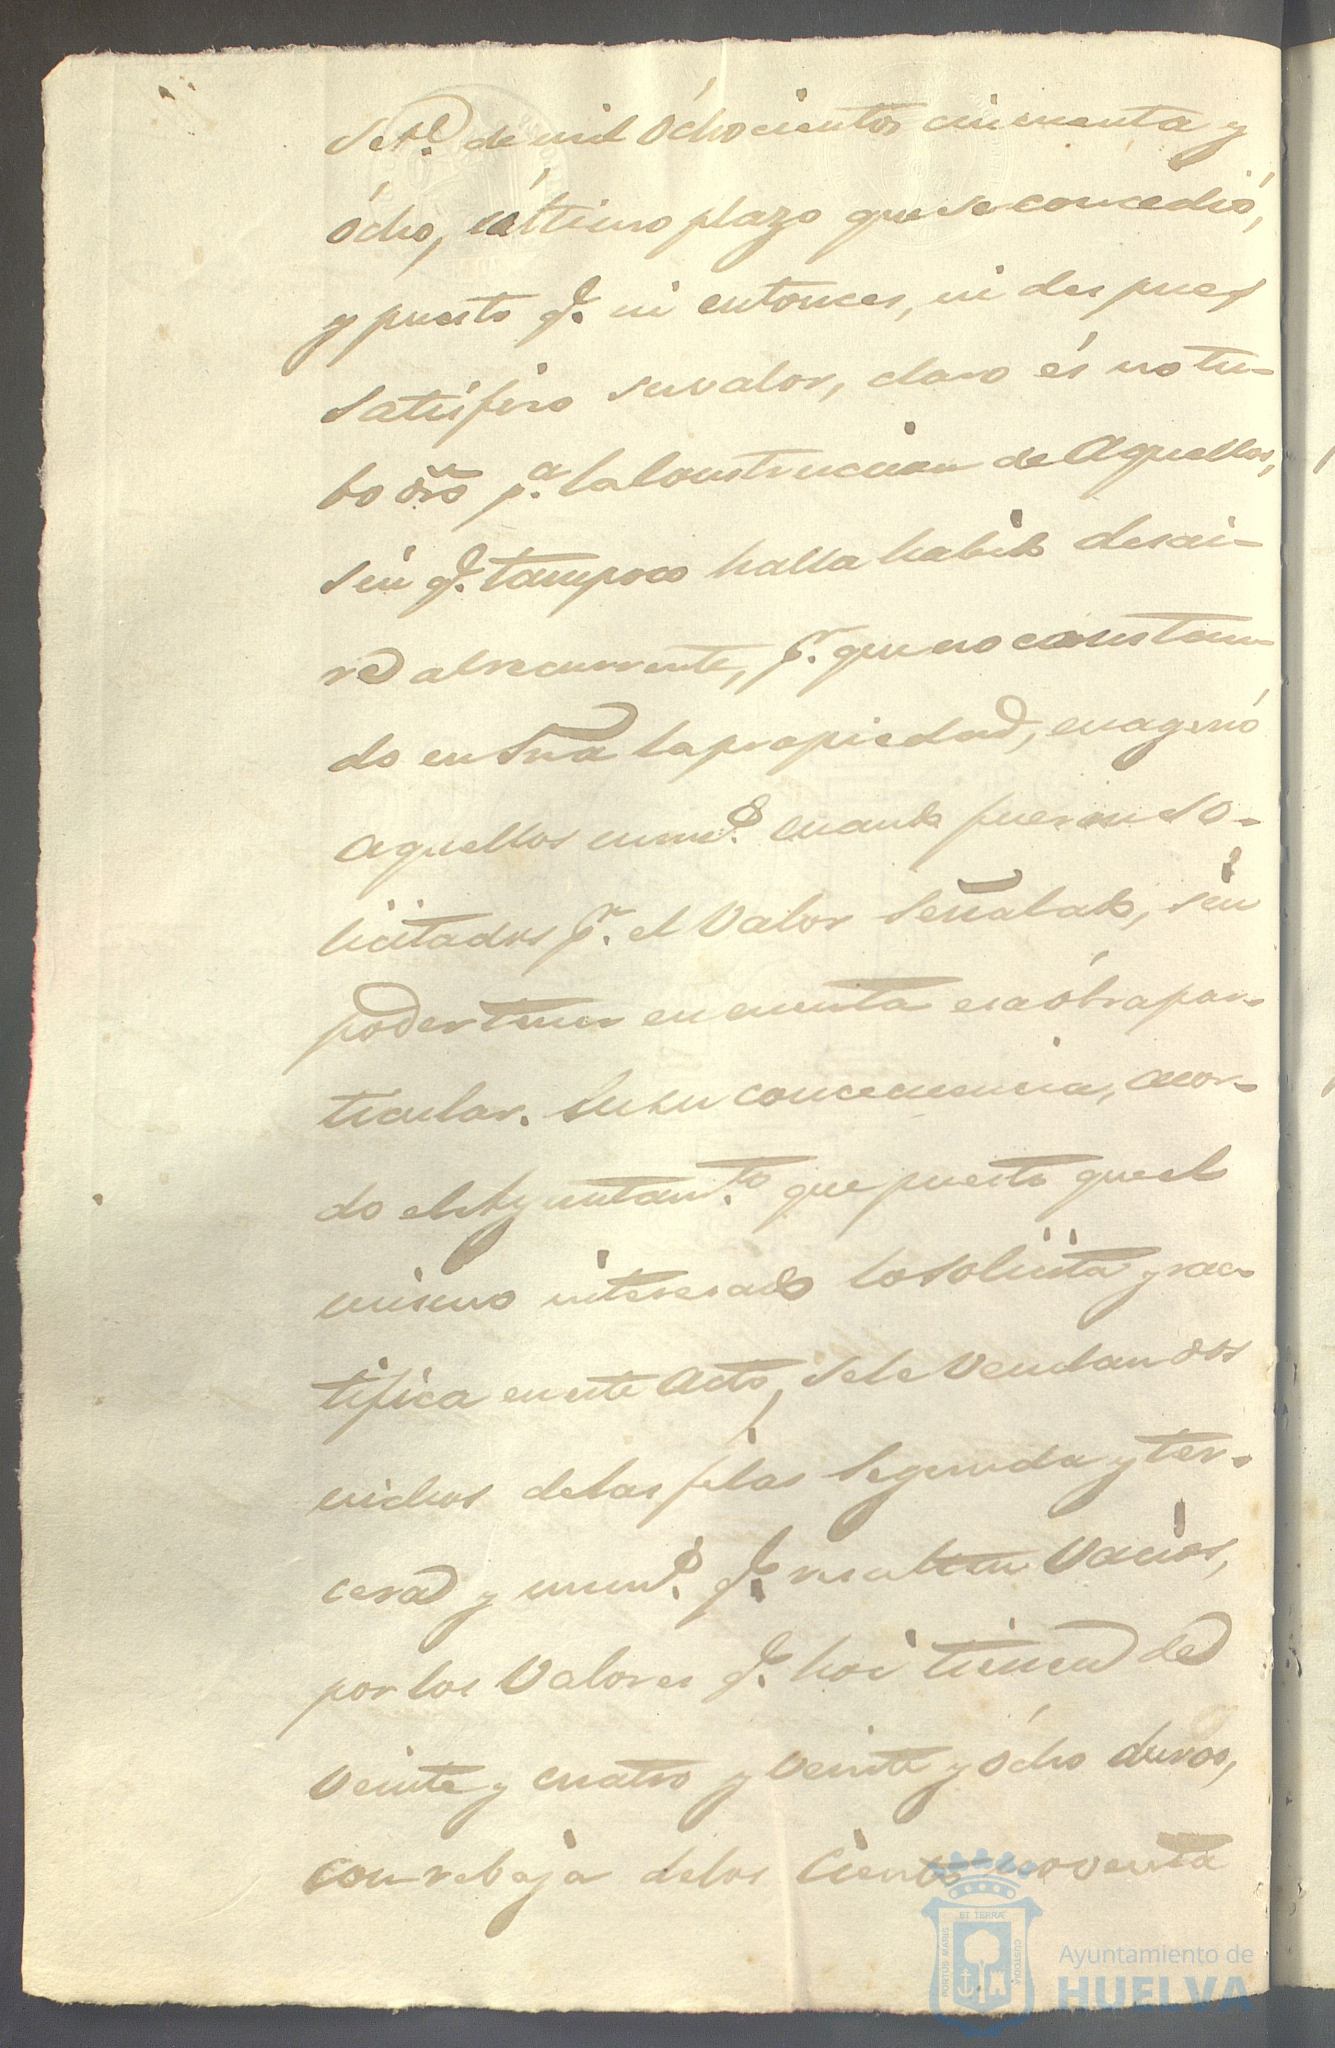 Set.e de mil óchocientos cincuenta y
ócho, último plazo que se concedió,
y puesto q.e ni entonces, ni despues
satisfizo su valor, claro és no tu-
bo dro p.a la Construccion de Aquellos,
sin q.e tampoco halla habido desai-
re al recurrente, p.r que no constan-
do en Sria la propiedad, enagenó
aquellos num.s cuando fueron so-
licitados p.r el Valor Señalado, sin
poder tener en cuenta esa óbra par-
ticular. En su concecuencia, acor-
do el Ayuntam.to que puesto que el
mismo interesado lo solicita y rac-
tifica en este Acto, se le Vendan dos
nichos de las filas Segunda y ter-
cera y num.s q.e resulten Vacios,
por los Valores q.e hoi tienen de
Veinte y cuatro y Veinte y ócho duros,
con rebaja de los Ciento noventa
ET TERRÆ
PORTUS MARIS
CUSTODIA
Ayuntamiento de
HUELVA